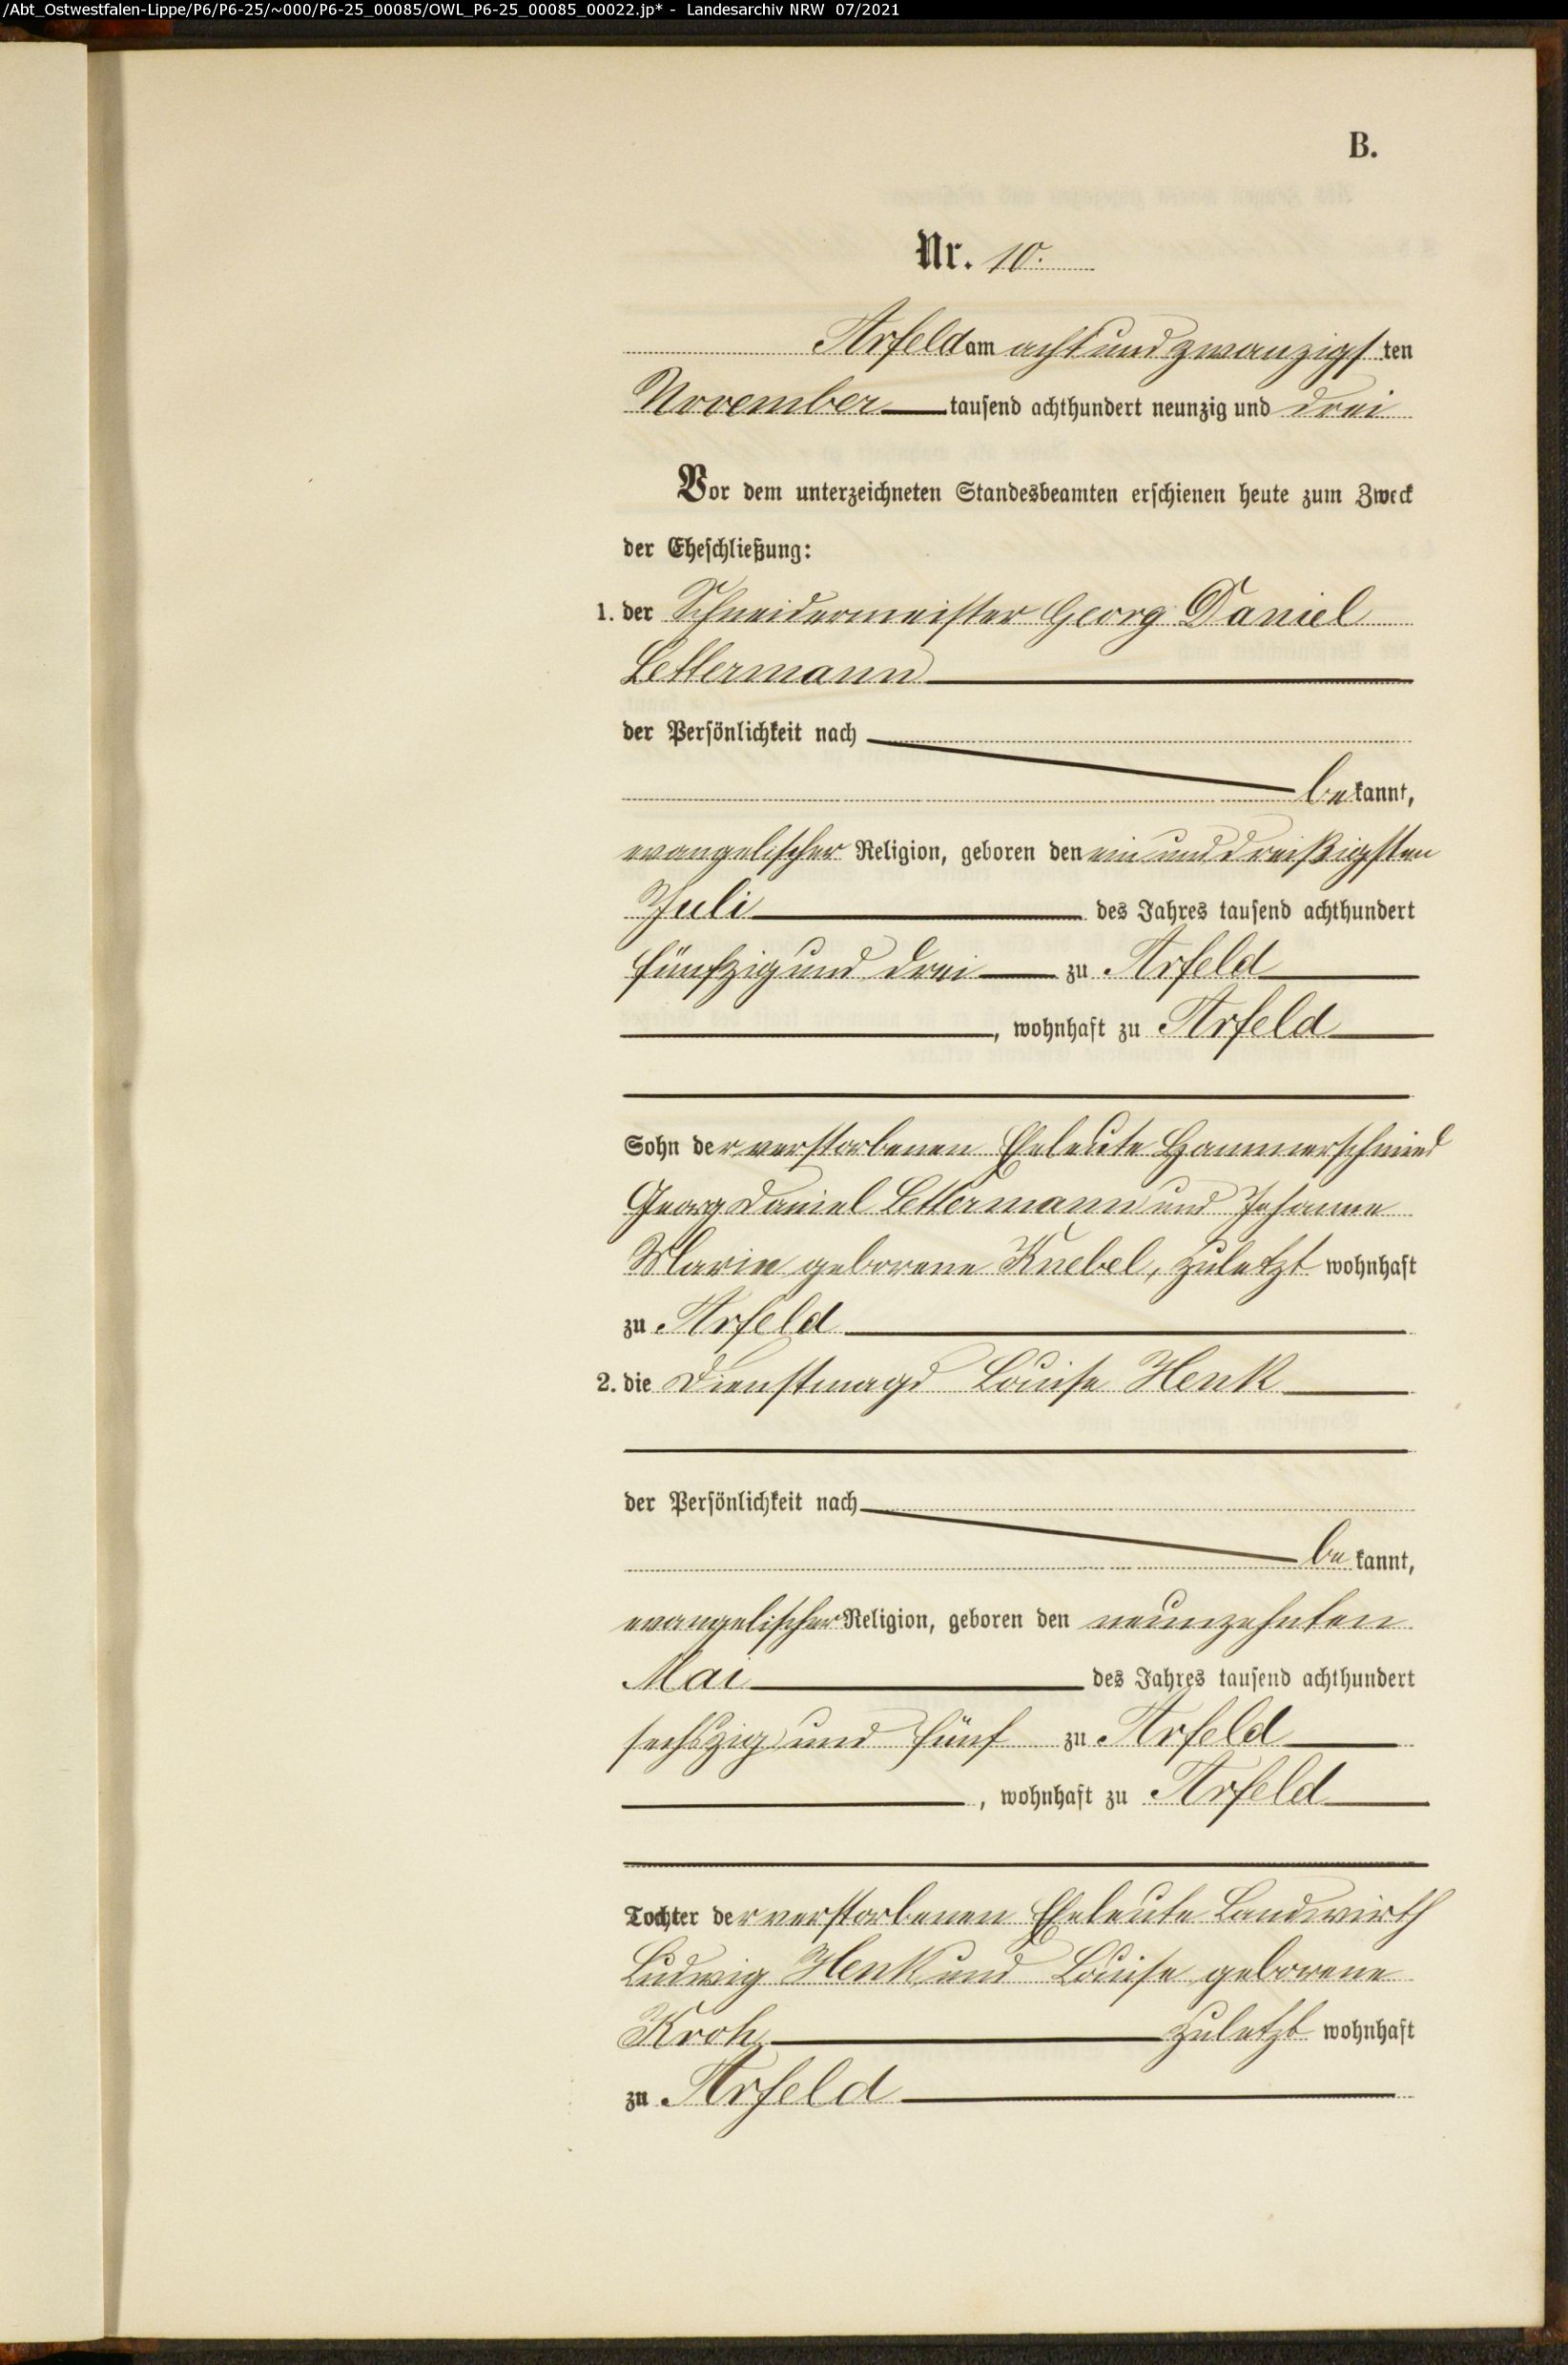 /Abt_Ostwestfalen-Lippe/P6/P6-25/~000/P6-25_00085/OWL_P6-25_00085_00022.jp* - Landesarchiv NRW 07/2021
B.
Nr. 10.
Arfeld am acht und zwanzigsten
November tausend achthundert neunzig und drei
Vor dem unterzeichneten Standesbeamten erschienen heute zum Zweck
der Eheschließung:
1. der Schneidermeister Georg Daniel
Lettermann
der Persönlichkeit nach
bekannt,
evangelischer Religion, geboren den ein und dreißigsten
Juli des Jahres tausend achthundert
fünfzig und drei zu Arfeld
, wohnhaft zu Arfeld
Sohn der verstorbenen Eheleute Hammerschmied
Georg Daniel Lettermann und Johanne
Marie geborene Knebel, zuletzt wohnhaft
zu Arfeld
2. die Dienstmagd Louise Henk
der Persönlichkeit nach
bekannt,
evangelischer Religion, geboren den neunzehnten
Mai des Jahres tausend achthundert
sechszig und fünf zu Arfeld
, wohnhaft zu Arfeld
Tochter der verstorbenen Eheleute Landwirth
Ludwig Henk und Louise geborene
Kroh zuletzt wohnhaft
zu Arfeld